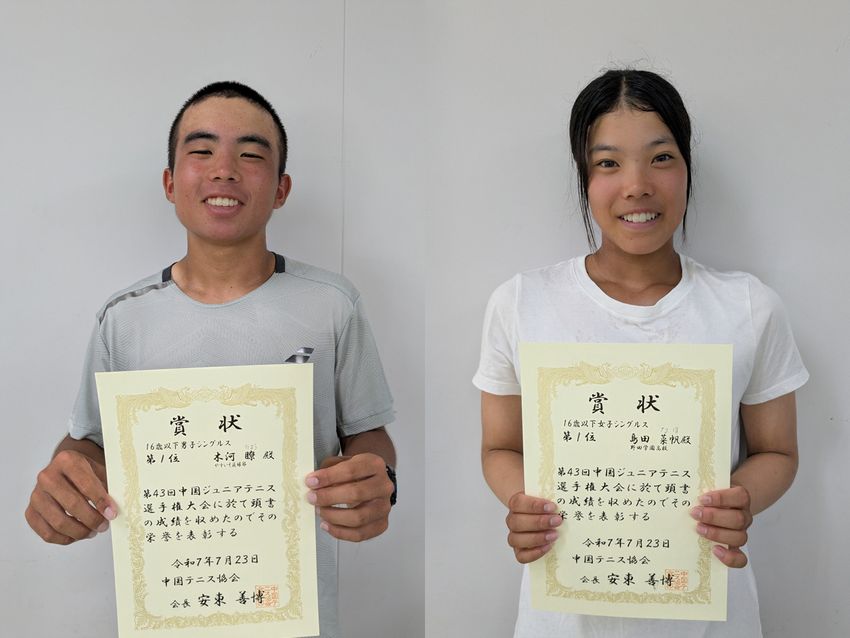 賞状
16歳以下男子シングルス
第1位 本河 瞭 殿
第43回中国ジュニアテニス
選手権大会に於て頭書
の成績を収めたのでその
栄誉を表彰する
令和7年7月23日
中国テニス協会
会長 安東 善博
賞状
16歳以下女子シングルス
第1位 島田 菜帆殿
野田学園高校
第43回中国ジュニアテニス
選手権大会に於て頭書
の成績を収めたのでその
栄誉を表彰する
令和7年7月23日
中国テニス協会
会長 安東 善博